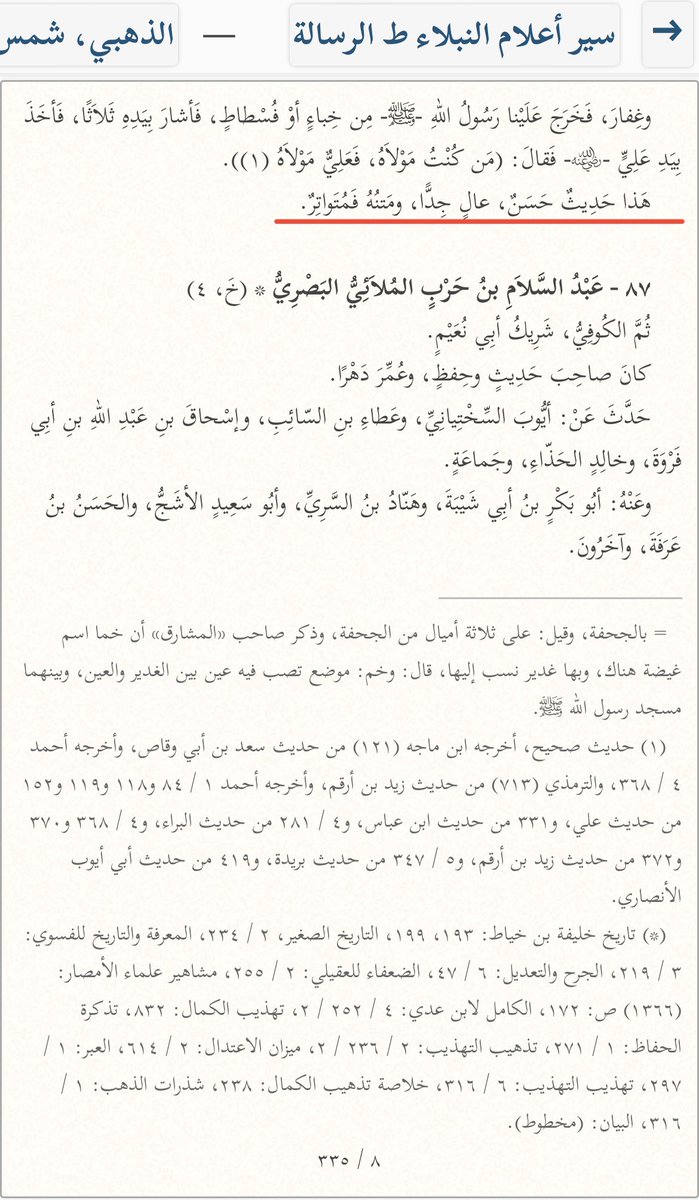 سير أعلام النبلاء ط الرسالة — الذهبي، شمس
وغِفارَ، فَخَرَجَ عَلَيْنا رَسُولُ اللهِ -ﷺ- مِن خِباءٍ أوْ فُسْطاطٍ، فَأشارَ بِيَدِهِ ثَلاَثًا، فَأخَذَ
بِيَدِ عَلِيٍّ -﵁- فَقالَ: (مَن كُنْتُ مَوْلاَهُ، فَعَلِيٌّ مَوْلاَهُ (١)).
هَذا حَدِيثٌ حَسَنٌ، عالٍ جِدًّا، ومَتنُهُ فَمُتَواتِرٌ.
٨٧ - عَبْدُ السَّلاَمِ بنُ حَرْبٍ المُلاَئِيُّ البَصْرِيُّ * (خَ، ٤)
ثُمَّ الكُوفِيُّ، شَرِيكُ أبِي نُعَيْمٍ.
كانَ صاحِبَ حَدِيثٍ وحِفظٍ، وعُمِّرَ دَهْرًا.
حَدَّثَ عَنْ: أيُّوبَ السِّخْتِيانِيِّ، وعَطاءِ بنِ السّائِبِ، وإسْحاقَ بنِ عَبْدِ اللهِ بنِ أبِي
فَرْوَةَ، وخالِدٍ الحَذّاءِ، وجَماعَةٍ.
وعَنْهُ: أبُو بَكْرٍ بنُ أبِي شَيْبَةَ، وهَنّادُ بنُ السَّرِيِّ، وأبُو سَعِيدٍ الأشَجُّ، والحَسَنُ بنُ
عَرَفَةَ، وآخَرُونَ.
= بالجحفة، وقيل: على ثلاثة أميال من الجحفة، وذكر صاحب «المشارق» أن خما اسم
غيضة هناك، وبها غدير نسب إليها، قال: وخم: موضع تصب فيه عين بين الغدير والعين، وبينهما
مسجد رسول الله ﷺ.
(١) حديث صحيح، أخرجه ابن ماجه (١٢١) من حديث سعد بن أبي وقاص، وأخرجه أحمد
٤ / ٣٦٨، والترمذي (٧١٣) من حديث زيد بن أرقم، وأخرجه أحمد ١ / ٨٤ و١١٨ و١١٩ و١٥٢
من حديث علي، و٣٣١ من حديث ابن عباس، و٤ / ٢٨١ من حديث البراء، و٤ / ٣٦٨ و٣٧٠
و٣٧٢ من حديث زيد بن أرقم، و٥ / ٣٤٧ من حديث بريدة، و٤١٩ من حديث أبي أيوب
الأنصاري.
(*) تاريخ خليفة بن خياط: ١٩٣، ١٩٩، التاريخ الصغير، ٢ / ٢٣٤، المعرفة والتاريخ للفسوي:
٣ / ٢١٩، الجرح والتعديل: ٦ / ٤٧، الضعفاء للعقيلي: ٢ / ٢٥٥، مشاهير علماء الأمصار:
(١٣٦٦) ص: ١٧٢، الكامل لابن عدي: ٤ / ٢٥٢ / ٢، تهذيب الكمال: ٨٣٢، تذكرة
الحفاظ: ١ / ٢٧١، تذهيب التهذيب: ٢ / ٢٣٦ / ٢، ميزان الاعتدال: ٢ / ٦١٤، العبر: ١ /
٢٩٧، تهذيب التهذيب: ٦ / ٣١٦، خلاصة تذهيب الكمال: ٢٣٨، شذرات الذهب: ١ /
٣١٦، البيان: (مخطوط).
٨ / ٣٣٥